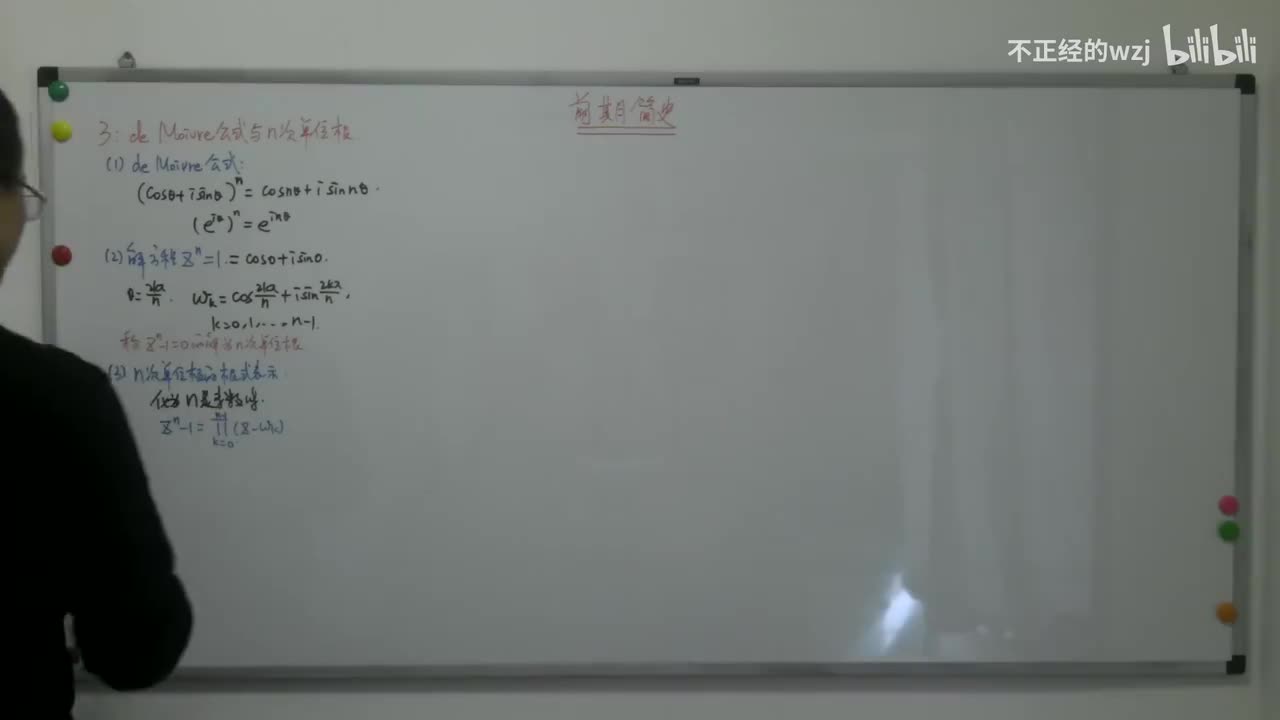 不正经的wzj bilibili
前期简史
3: de Moivre公式与n次单位根
(1) de Moivre公式:
(cosθ+isinθ)ⁿ = cosnθ+isin nθ.
(e^{iθ})ⁿ = e^{inθ}
(2) 解方程 zⁿ=1. = cos0+isin0.
θ=2kπ/n. ωₖ=cos 2kπ/n + isin 2kπ/n,
k=0,1,...,n-1.
称 zⁿ-1=0的解为n次单位根
(3) n次单位根的根式表示
仅当n是奇数时.
zⁿ-1 = ∏_{k=0}^{n-1} (z-ωₖ)